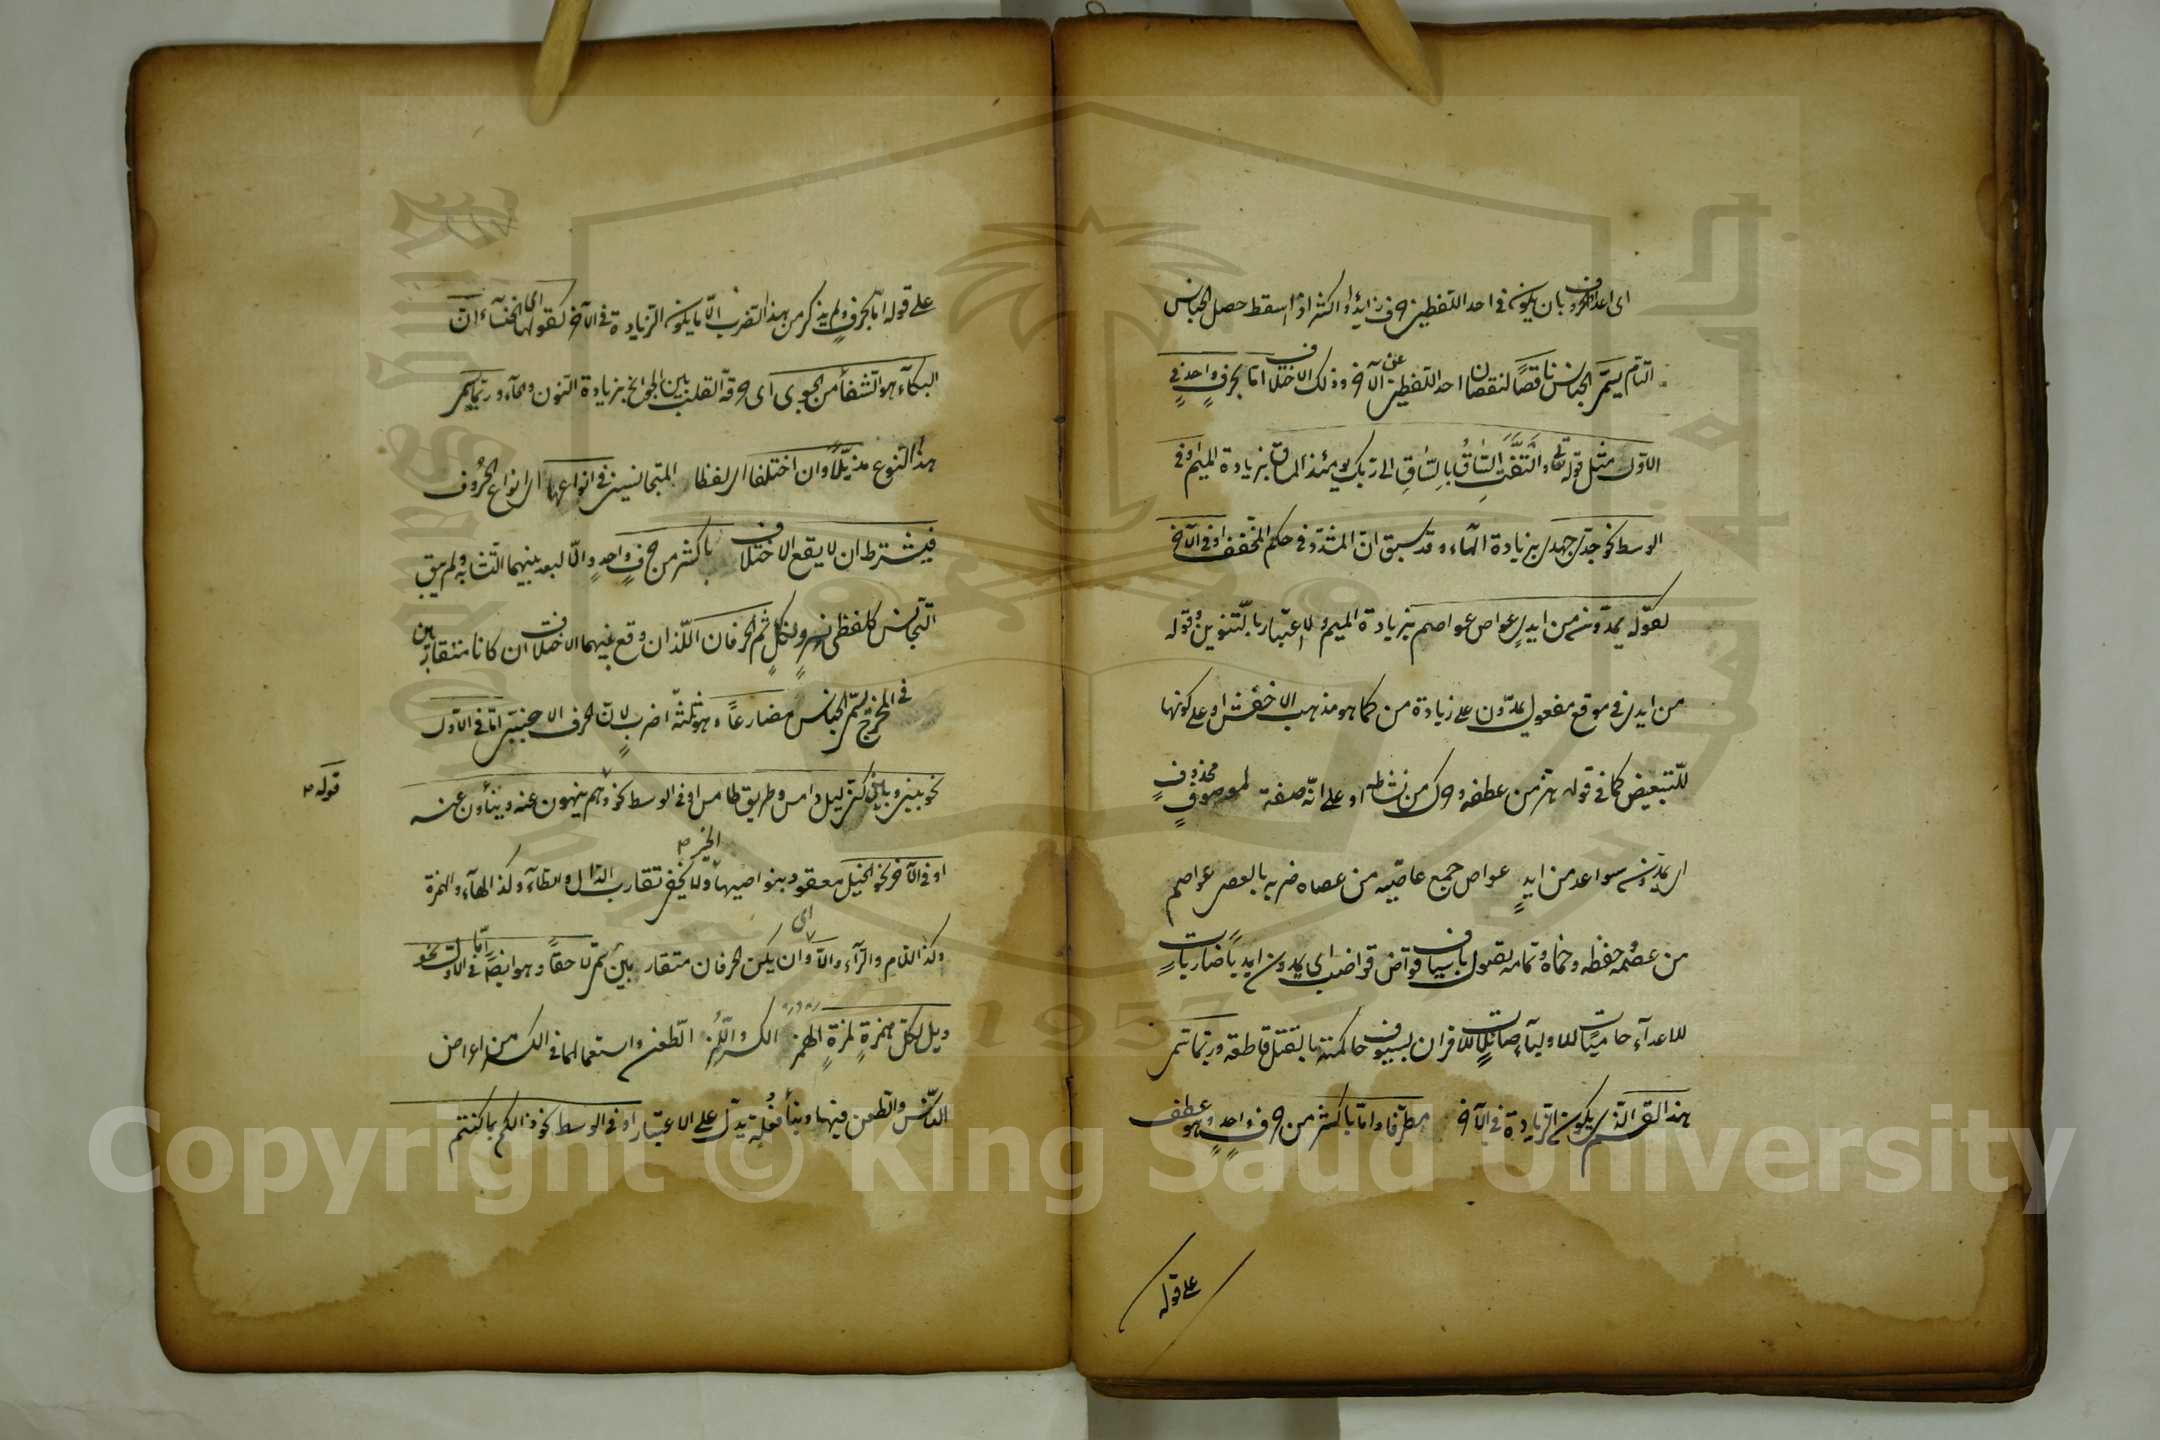 اى اعداد الحروف بان يكون فى احد اللفظين حرف زايد او اكثر اذا اسقط حصل الجناس
التام يسمى الجناس ناقصًا لنقصان احد اللفظين عن الآخر وذلك الاختلاف اما بحرفٍ واحدٍ فى
الاول مثل قوله تعالى والتفَّتِ السَّاقُ بِالسَّاقِ الى ربك يومئذ المساق بزيادة الميم او فى
الوسط نحو جدى جهدى بزيادة الهاء وقد سبق انّ المشدّد فى حكم المخفف او فى الآخر
كقوله يمدون من ايدٍ عواص عواصم بزيادة الميم ولا اعتبار بالتنوين وقوله
من ايد فى موقع مفعول يمدّون على زيادة من كما هو مذهب الاخفش او على كونها
للتبعيض كما فى قولهم هز من عطفه وحرك من نشاطه او على انّه صفة لموصوفٍ محذوفٍ
اى يمدون سواعد من ايدٍ عواص جمع عاصية من عصاه ضربه بالعصى عواصم
من عصمه حفظه وحماه وتمامه تصول باسياف قواض قواضب اى يمدون ايديًا ضارباتٍ
للاعدآء حاميات للاوليآء صائلات للاقران بسيوف حاكمة بالقتل قاطعة وربما تسمى
هذا القسم الذى يكون الزيادة فى الآخر مطرّفا واما باكثر من حرف واحدٍ وهو عطف
على قوله
على قوله اما بحرفٍ ولم يذكر من هذا الضرب الّا ما يكون الزيادة فى الآخر كقولها اى الخنسآء انّ
البكآء هو الشفآ من الجوى اى حرقة القلب بين الجوانح بزيادة النون والحاء وربما يسمى
هذا النوع مذيّلًا وان اختلفا اى لفظا المتجانسين فى انواعها اى انواع الحُروف
فيشترط ان لا يقع الاختلاف باكثر من حرفٍ واحدٍ والّا لبعد بينهما التشابه ولم يبق
التجانس كلفظى نصرٍ ونكلٍ ثم الحرفان اللذان وقع بينهما الاختلاف ان كانا متقاربين
فى المخرج سمى الجناس مضارعًا وهو ثلثة اضربٍ لان الحرف الاجنبى اما فى الاول
نحو بينى وبين كنى ليل دامس وطريق طامس او فى الوسط نحو قوله وهم ينهون عنه وينأون عنه
او فى الآخر نحو الخيل معقود بنواصيها الخير ولا يخفى تقارب الدال والطآء وكذا الهآء والهمزة
وكذا اللام والرآء والّا اى وان لم يكن الحرفان متقاربين سمى لاحقًا وهو ايضًا اما فى الاول نحو
ويل لكلّ همزةٍ لمزةٍ الهمز الكسر واللَّمز الطعن واستعمالهما فى الكسر من اعراض
الناس والطعن فيها وبنآ فُعَلة يدلّ على الاعتياد او فى الوسط نحو ذلكم بما كنتم